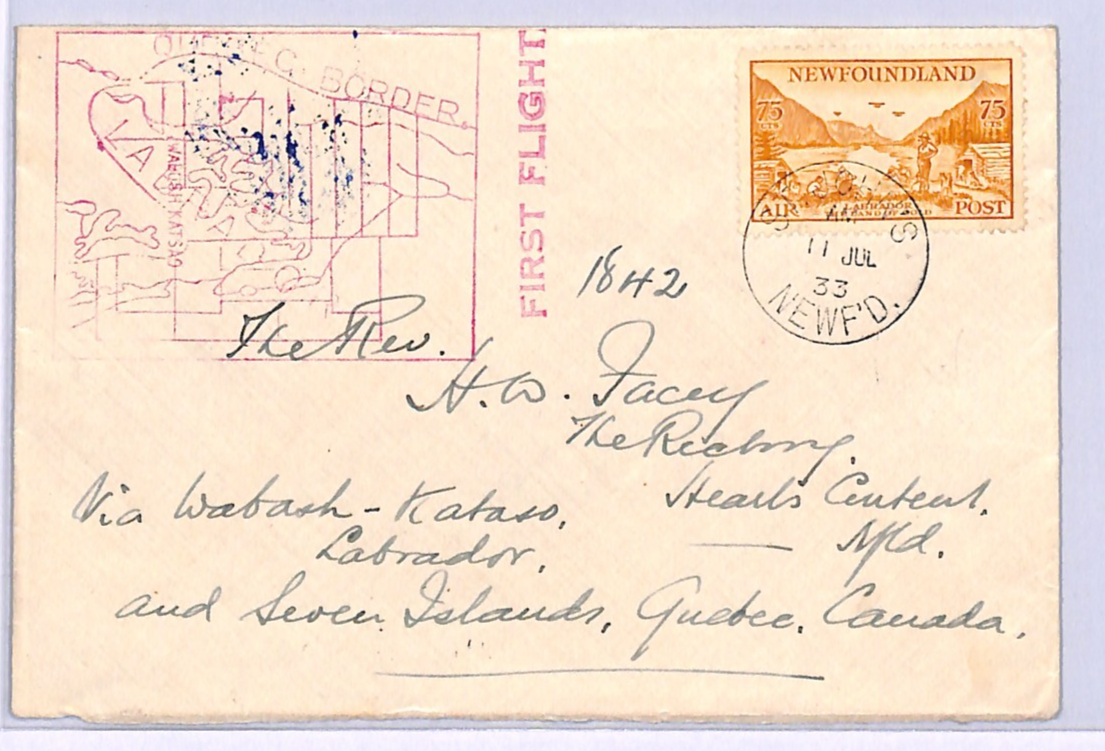 QUEBEC BORDER.
WABUSH KATSAO
FIRST FLIGHT
NEWFOUNDLAND
75 CTS 75 CTS
LABRADOR
LAND OF GOLD
AIR POST
ST. JOHN'S
AM
11 JUL
33
NEWF'D.
1842
The Rev.
H. W. Facey
The Rectory.
Heart's Content.
Nfld.
Via Wabash - Katsao,
Labrador,
and Seven Islands, Quebec. Canada.